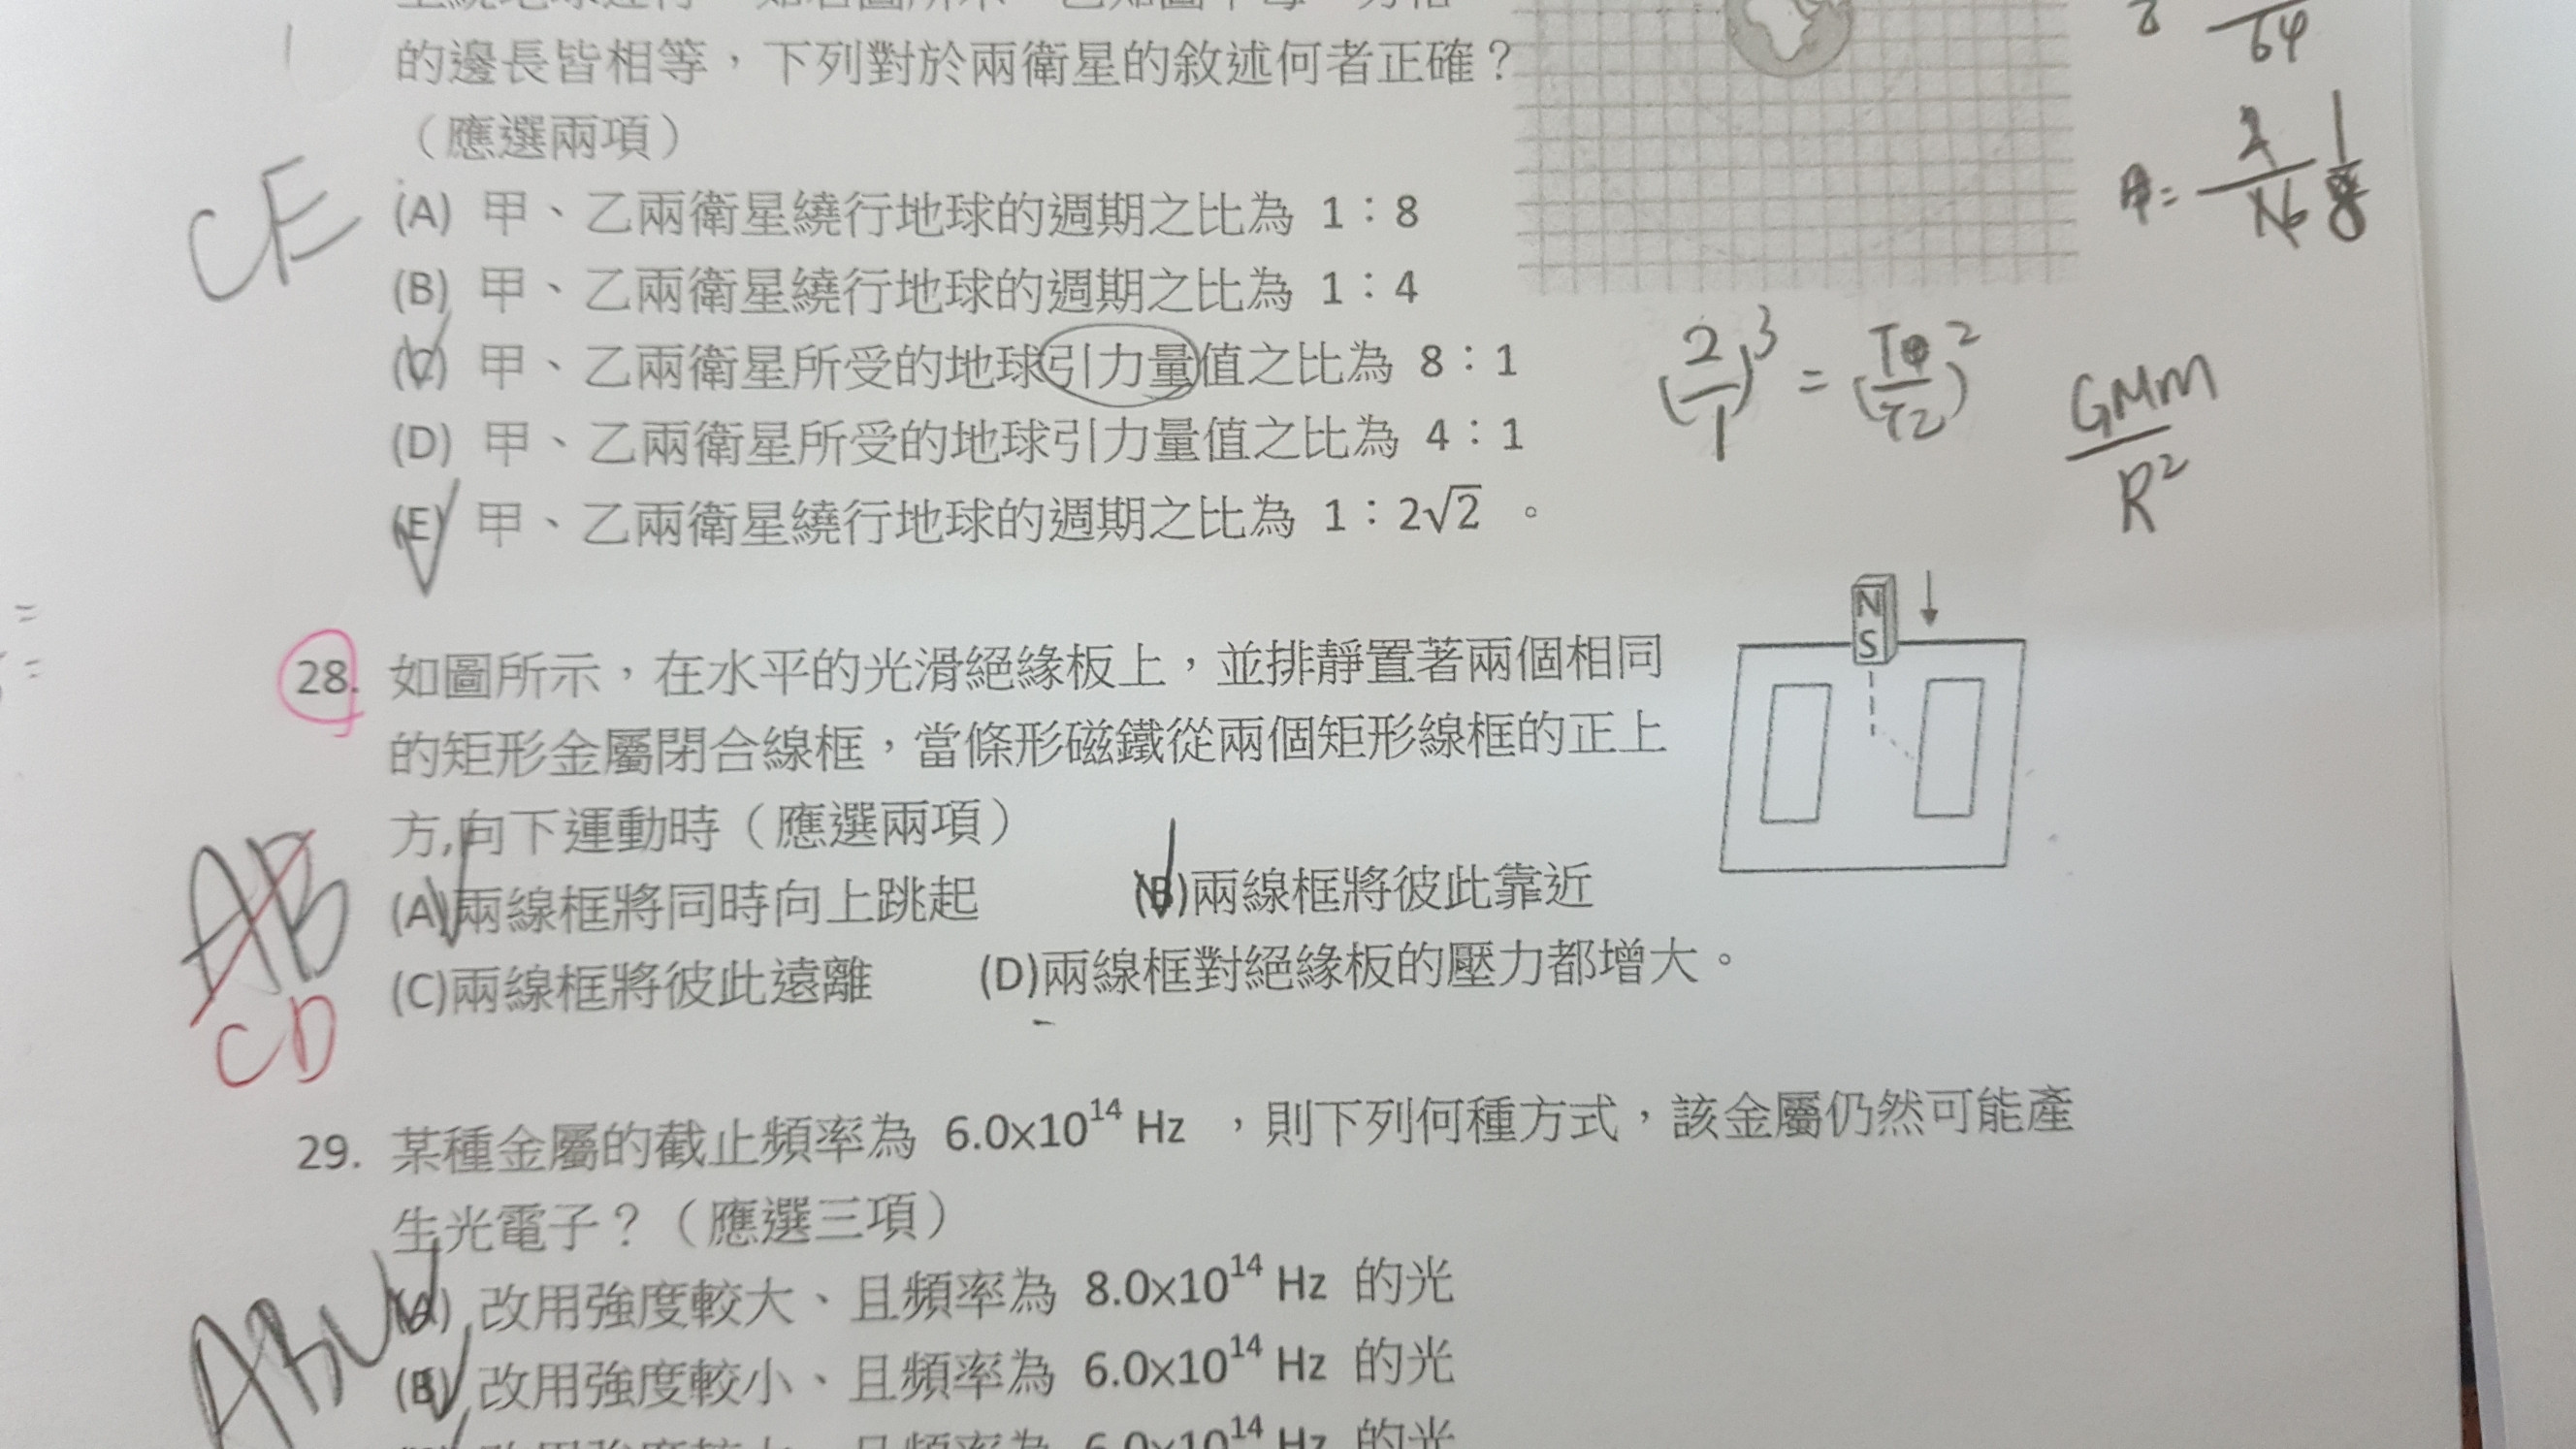 的邊長皆相等，下列對於兩衛星的敘述何者正確？
（應選兩項）
CE
(A) 甲、乙兩衛星繞行地球的週期之比為 1：8
(B) 甲、乙兩衛星繞行地球的週期之比為 1：4
(C) 甲、乙兩衛星所受的地球引力量值之比為 8：1
(D) 甲、乙兩衛星所受的地球引力量值之比為 4：1
(E) 甲、乙兩衛星繞行地球的週期之比為 1：2√2 。
64
GMm
R²
28. 如圖所示，在水平的光滑絕緣板上，並排靜置著兩個相同
的矩形金屬閉合線框，當條形磁鐵從兩個矩形線框的正上
方,向下運動時（應選兩項）
N
S
AB
CD
(A)兩線框將同時向上跳起 (B)兩線框將彼此靠近
(C)兩線框將彼此遠離 (D)兩線框對絕緣板的壓力都增大。
29. 某種金屬的截止頻率為 6.0x10¹⁴ Hz ，則下列何種方式，該金屬仍然可能產
生光電子？（應選三項）
(A) 改用強度較大、且頻率為 8.0x10¹⁴ Hz 的光
(B) 改用強度較小、且頻率為 6.0x10¹⁴ Hz 的光